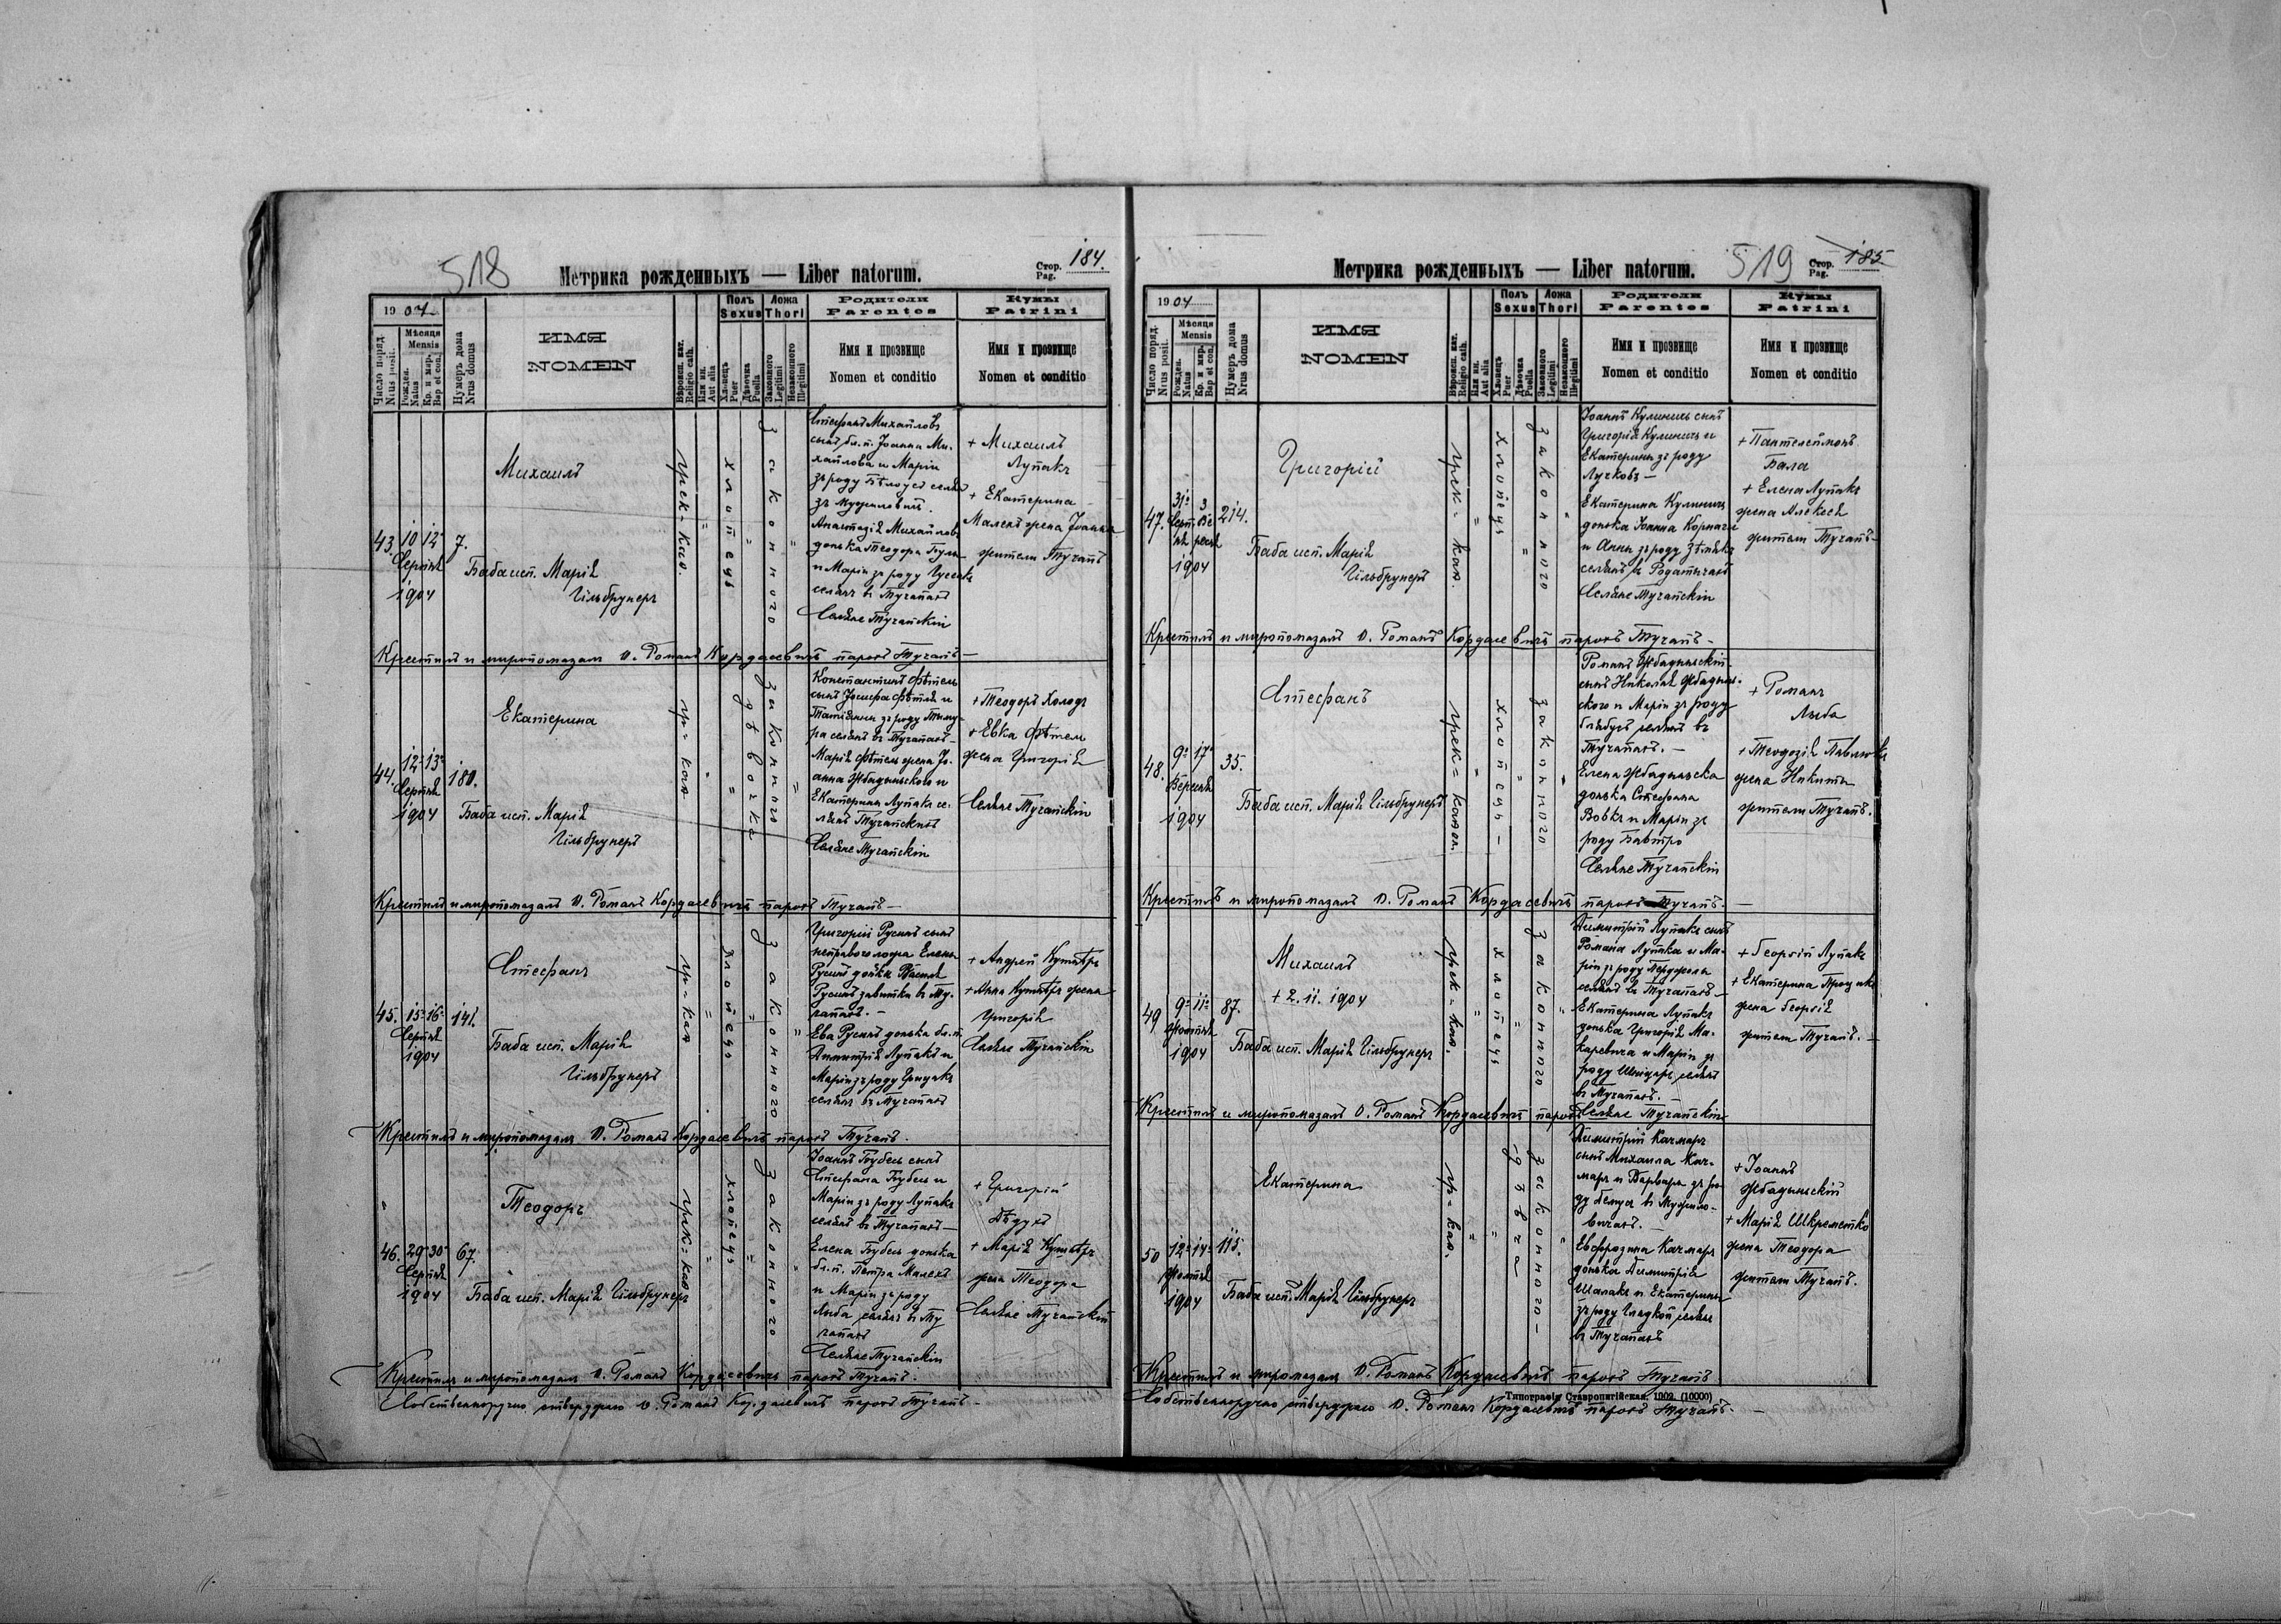 518
Метрика рожденныхъ — Liber natorum.
Стор. Pag. 184.
19 04
Число поряд. Nrus posit.
Мѣсяця Mensis
Рожден. Natus
Кр. и мир. Bap et con.
Нумеръ дома Nrus domus
ИМЯ
NOMEN
Вѣроисп. кат. Religio cath.
Или ин. Aut alia
Полъ Sexus
Хлопецъ Puer
Дѣвочка Puella
Ложа Thori
Законного Legitimi
Незаконного Illegitimi
Родители
Parentes
Имя и прозвище
Nomen et conditio
Кумы
Patrini
Имя и прозвище
Nomen et conditio
43. 10 12 7.
Серпня
1904
Михаилъ
Баба исп. Марія
Гільбрунеръ
грек-кат.
хлопецъ
законного
Стефанъ Михайловъ
сынъ бл. п. Іоанна Ми-
хайлова и Маріи
зъ роду
Анастазія Михайловъ
донька Теодора
и Маріи зъ роду
селянъ въ Тучапахъ
Селяне Тучапскіи
+ Михаилъ
Лупакъ
+ Екатерина
жена Іоанна
жители Тучапъ
Крестилъ и миропомазалъ О. Романъ Кордасевичъ парохъ Тучапъ —
44. 12 13 180.
Серпня
1904
Екатерина
Баба исп. Марія
Гільбрунеръ
гр-кат
дѣвочка
законного
Константинъ Фѣтель
сынъ Іосифа Фѣтля и
Татіянны зъ роду
селянъ въ Тучапахъ —
Марія Фѣтель жена Іо-
анна Жбадыньского и
Екатерины Лупакъ се-
лянъ Тучапскихъ
Селяне Тучапскіи
+ Теодоръ Холодъ
+ Евка Фѣтель
жена Григорія
Селяне Тучапскіи
Крестилъ и миропомазалъ О. Романъ Кордасевичъ парохъ Тучапъ —
45. 15 16 141.
Серпня
1904
Стефанъ
Баба исп. Марія
Гільбрунеръ
гр-кат
хлопецъ
законного
Григорій Русинъ сынъ
неправого ложа Елены
Русинъ донька Василя
Русинъ въ Ту-
чапахъ. —
Ева Русинъ донька бл. п.
Димитрія Лупакъ и
Маріи зъ роду Грицакъ
селянъ въ Тучапахъ
+ Андрей
+ Анна жена
Григорія
Селяне Тучапскіи
Крестилъ и миропомазалъ О. Романъ Кордасевичъ парохъ Тучапъ.
46. 29 30 67.
Серпня
1904
Теодоръ
Баба исп. Марія Гільбрунеръ
грек-кат
хлопецъ
законного
Іоаннъ Бубесь сынъ
Стефана Бубесь и
Маріи зъ роду Лупакъ
селянъ въ Тучапахъ —
Елена Бубесь донька
бл. п. Петра
и Маріи зъ роду
Лыба селянъ въ Ту
чапахъ
Селяне Тучапскіи
+ Григорій
Дѣдухъ
+ Марія
жена Теодора
Селяне Тучапскіи
Крестилъ и миропомазалъ О. Романъ Кордасевичъ парохъ Тучапъ.
Собственноручно ствержаю О. Романъ Кордасевичъ парохъ Тучапъ —
Метрика рожденныхъ — Liber natorum.
519
Стор. Pag. 185
19 04
Число поряд. Nrus posit.
Мѣсяця Mensis
Рожден. Natus
Кр. и мир. Bap et con.
Нумеръ дома Nrus domus
ИМЯ
NOMEN
Вѣроисп. кат. Religio cath.
Или ин. Aut alia
Полъ Sexus
Хлопецъ Puer
Дѣвочка Puella
Ложа Thori
Законного Legitimi
Незаконного Illegitimi
Родители
Parentes
Имя и прозвище
Nomen et conditio
Кумы
Patrini
Имя и прозвище
Nomen et conditio
47. 31 3 214.
1904
Григорій
Баба исп. Марія
Гільбрунеръ
грек-кат.
хлопецъ
законного
Іоаннъ Кулиничъ сынъ
Григорія Кулиничъ и
Екатерины зъ роду
Лучковъ —
Екатерина Кулиничъ
донька Іоанна
и Анны зъ роду
селянъ въ Родатычахъ
Селяне Тучапскіи
+ Пантелеймонъ
Бала
+ Елена Лупакъ
жена Алексея
жители Тучапъ —
Крестилъ и миропомазалъ О. Романъ Кордасевичъ парохъ Тучапъ —
48. 9 17 35.
Вересня
1904
Стефанъ
Баба исп. Марія Гільбрунеръ
грек-катол.
хлопецъ —
законного
Романъ Жбадыньскій
сынъ Николая Жбадынь-
ского и Маріи зъ роду
селянъ въ
Тучапахъ. —
Елена Жбадыньска
донька Стефана
Вовкъ и Маріи зъ
роду
Селяне Тучапскіи
+ Романъ
Лыба
+ Теодозія
жена Никиты
жители Тучапъ.
Крестилъ и миропомазалъ О. Романъ Кордасевичъ парохъ Тучапъ. —
49 9 11 87.
Жовтня
1904
Михаилъ
+ 2. 11. 1904
Баба исп. Марія Гільбрунеръ
грек-кат.
хлопецъ
законного
Димитрій Лупакъ сынъ
Романа Лупака и Ма-
ріи зъ роду
селянъ въ Тучапахъ —
Екатерина Лупакъ
донька Григорія Ма-
каревича и Маріи зъ
роду селянъ
въ Тучапахъ. —
Селяне Тучапскіи
+ Георгій Лупакъ
+ Екатерина
жена Георгія
жители Тучапъ. —
Крестилъ и миропомазалъ О. Романъ Кордасевичъ парохъ
50 12 14 115.
Жовтня
1904
Екатерина
Баба исп. Марія Гільбрунеръ
гр-кат.
законного —
Димитрій Качмаръ
сынъ Михаила Кач-
маръ и Варвары зъ ро-
ду
Евфрозина Качмаръ
донька Димитрія
и Екатерины
зъ роду Гладкой селянъ
въ Тучапахъ
+ Іоаннъ
Жбадыньскій
+ Марія Шкреметко
жена Теодора
жители Тучапъ.
Крестилъ и миропомазалъ О. Романъ Кордасевичъ парохъ Тучапъ
Типографія Ставропигійская. 1902. (10000)
Собственноручно ствержаю О. Романъ Кордасевичъ парохъ Тучапъ. —